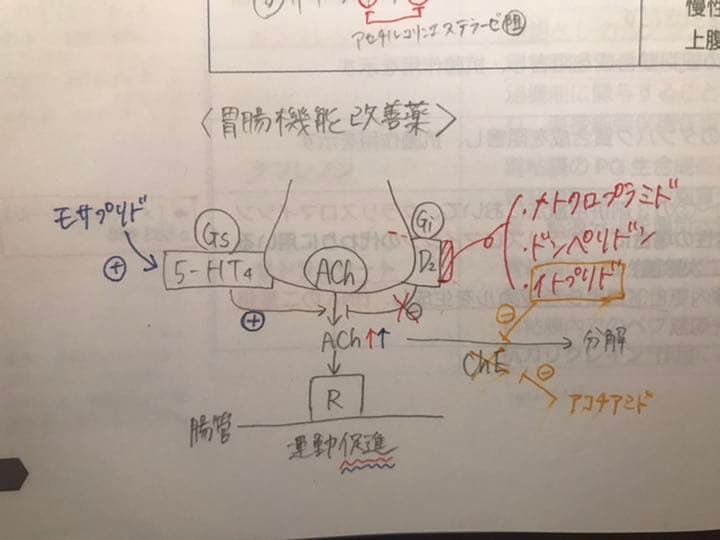 アセチルコリンエステラーゼ阻
慢性
上腹
〈胃腸機能改善薬〉
モサプリド
Gs
Gi
・メトクロプラミド
5-HT4
ACh
D2
・ドンペリドン
・イトプリド
⊕
⊕
⊖
⊖
ACh↑↑
ChE
分解
⊖
アコチアミド
R
腸管
運動促進